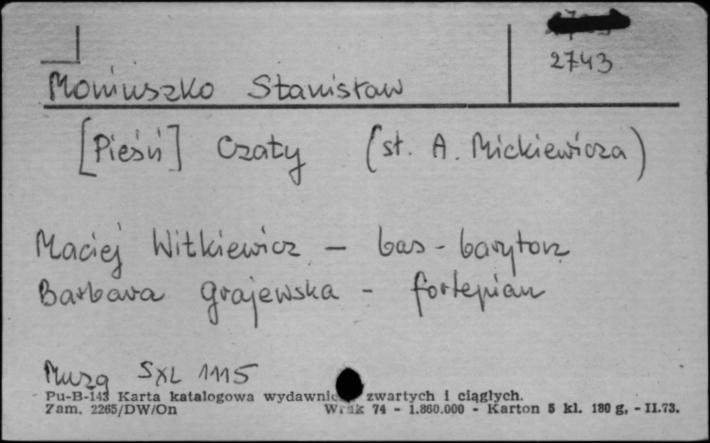 2743
Moniuszko Stanisław
[Pieśń] Czaty (sł. A. Mickiewicza)
Maciej Witkiewicz – bas-baryton
Barbara Grajewska - fortepian
Muza SXL 1115
Pu-B-143 Karta katalogowa wydawnic zwartych i ciągłych.
Zam. 2265/DW/On W 74 - 1.860.000 - Karton 5 kl. 180 g, - II.73.